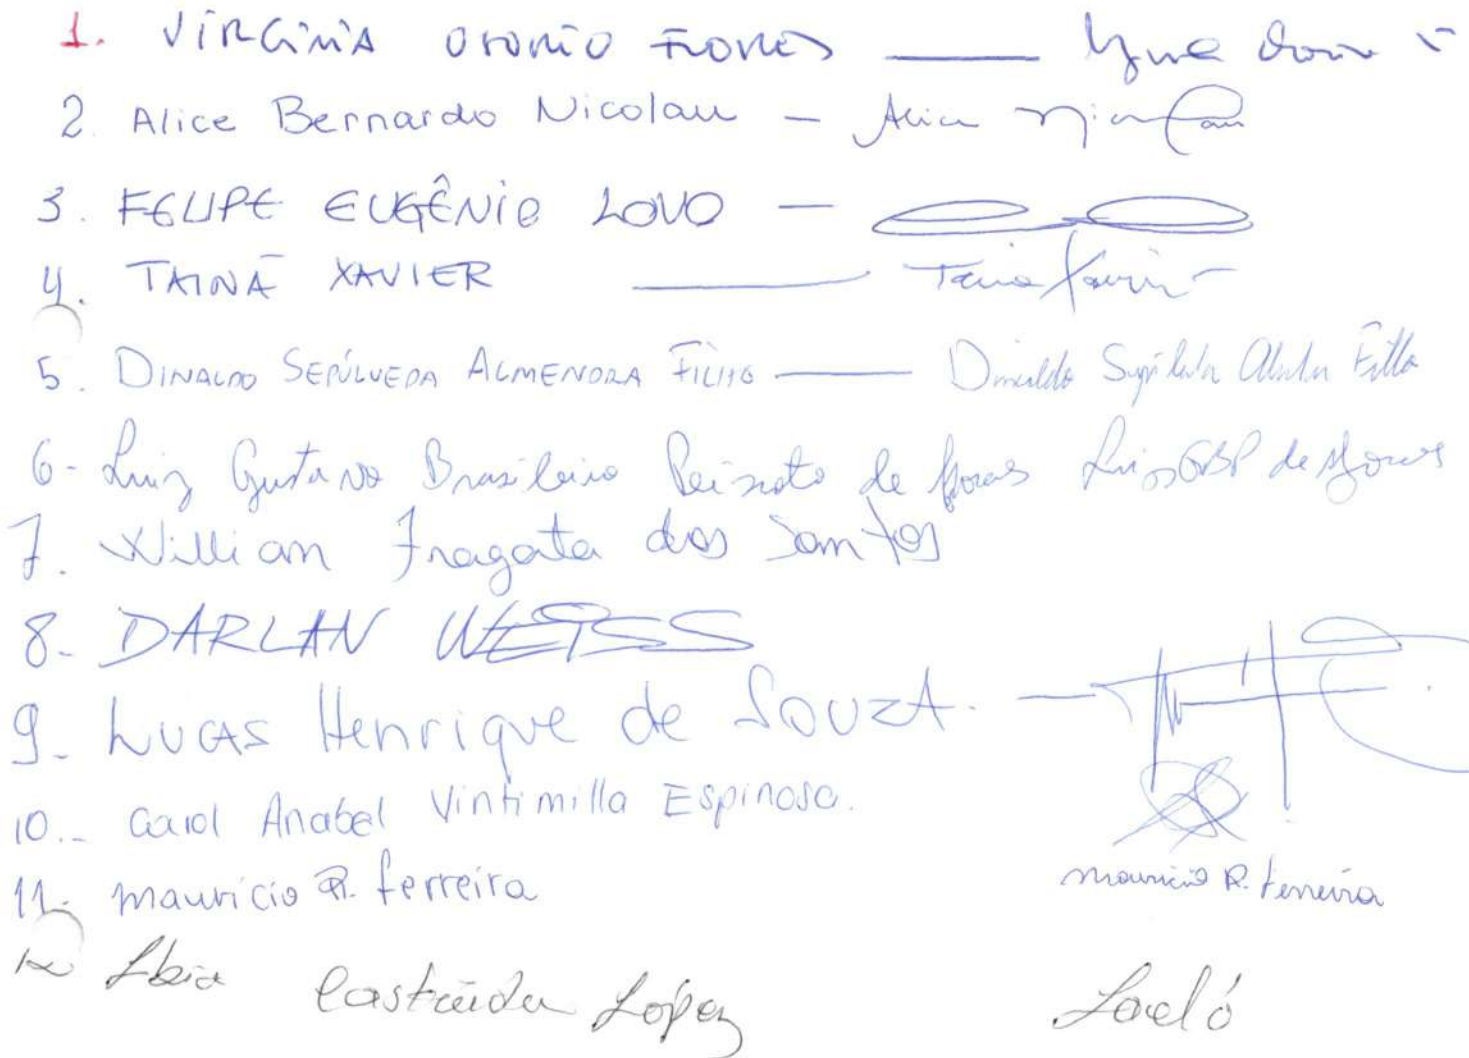 1. VIRGINIA OSORIO FLORES ——
2. Alice Bernardo Nicolau – Alice Nicolau
3. FELIPE EUGÊNIO LOVO –
4. TAINÁ XAVIER —— Tainá Xavier
5. DINALDO SEPÚLVEDA ALMENDRA FILHO —— Dinaldo Sepúlveda Filho
6- Luiz Gustavo Brasileiro Peixoto de Moraes Luiz GBP de Moraes
7. Willian Fragata dos Santos
8- DARLAN WEISS
9- LUCAS Henrique de SOUZA. —
10.- Carol Anabel Vintimilla Espinosa.
11- mauricio R. ferreira mauricio R. ferreira
12 Castañeda López